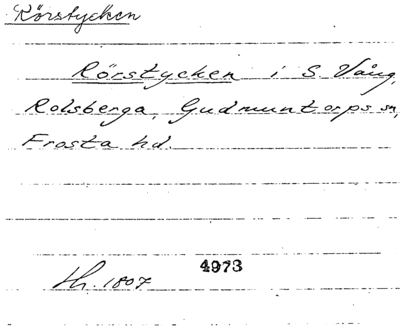 Rörstycken
Rörstycken i S. Vång,
Rolsberga, Gudmuntorps sn,
Frosta hd.
4973
Lh. 1807